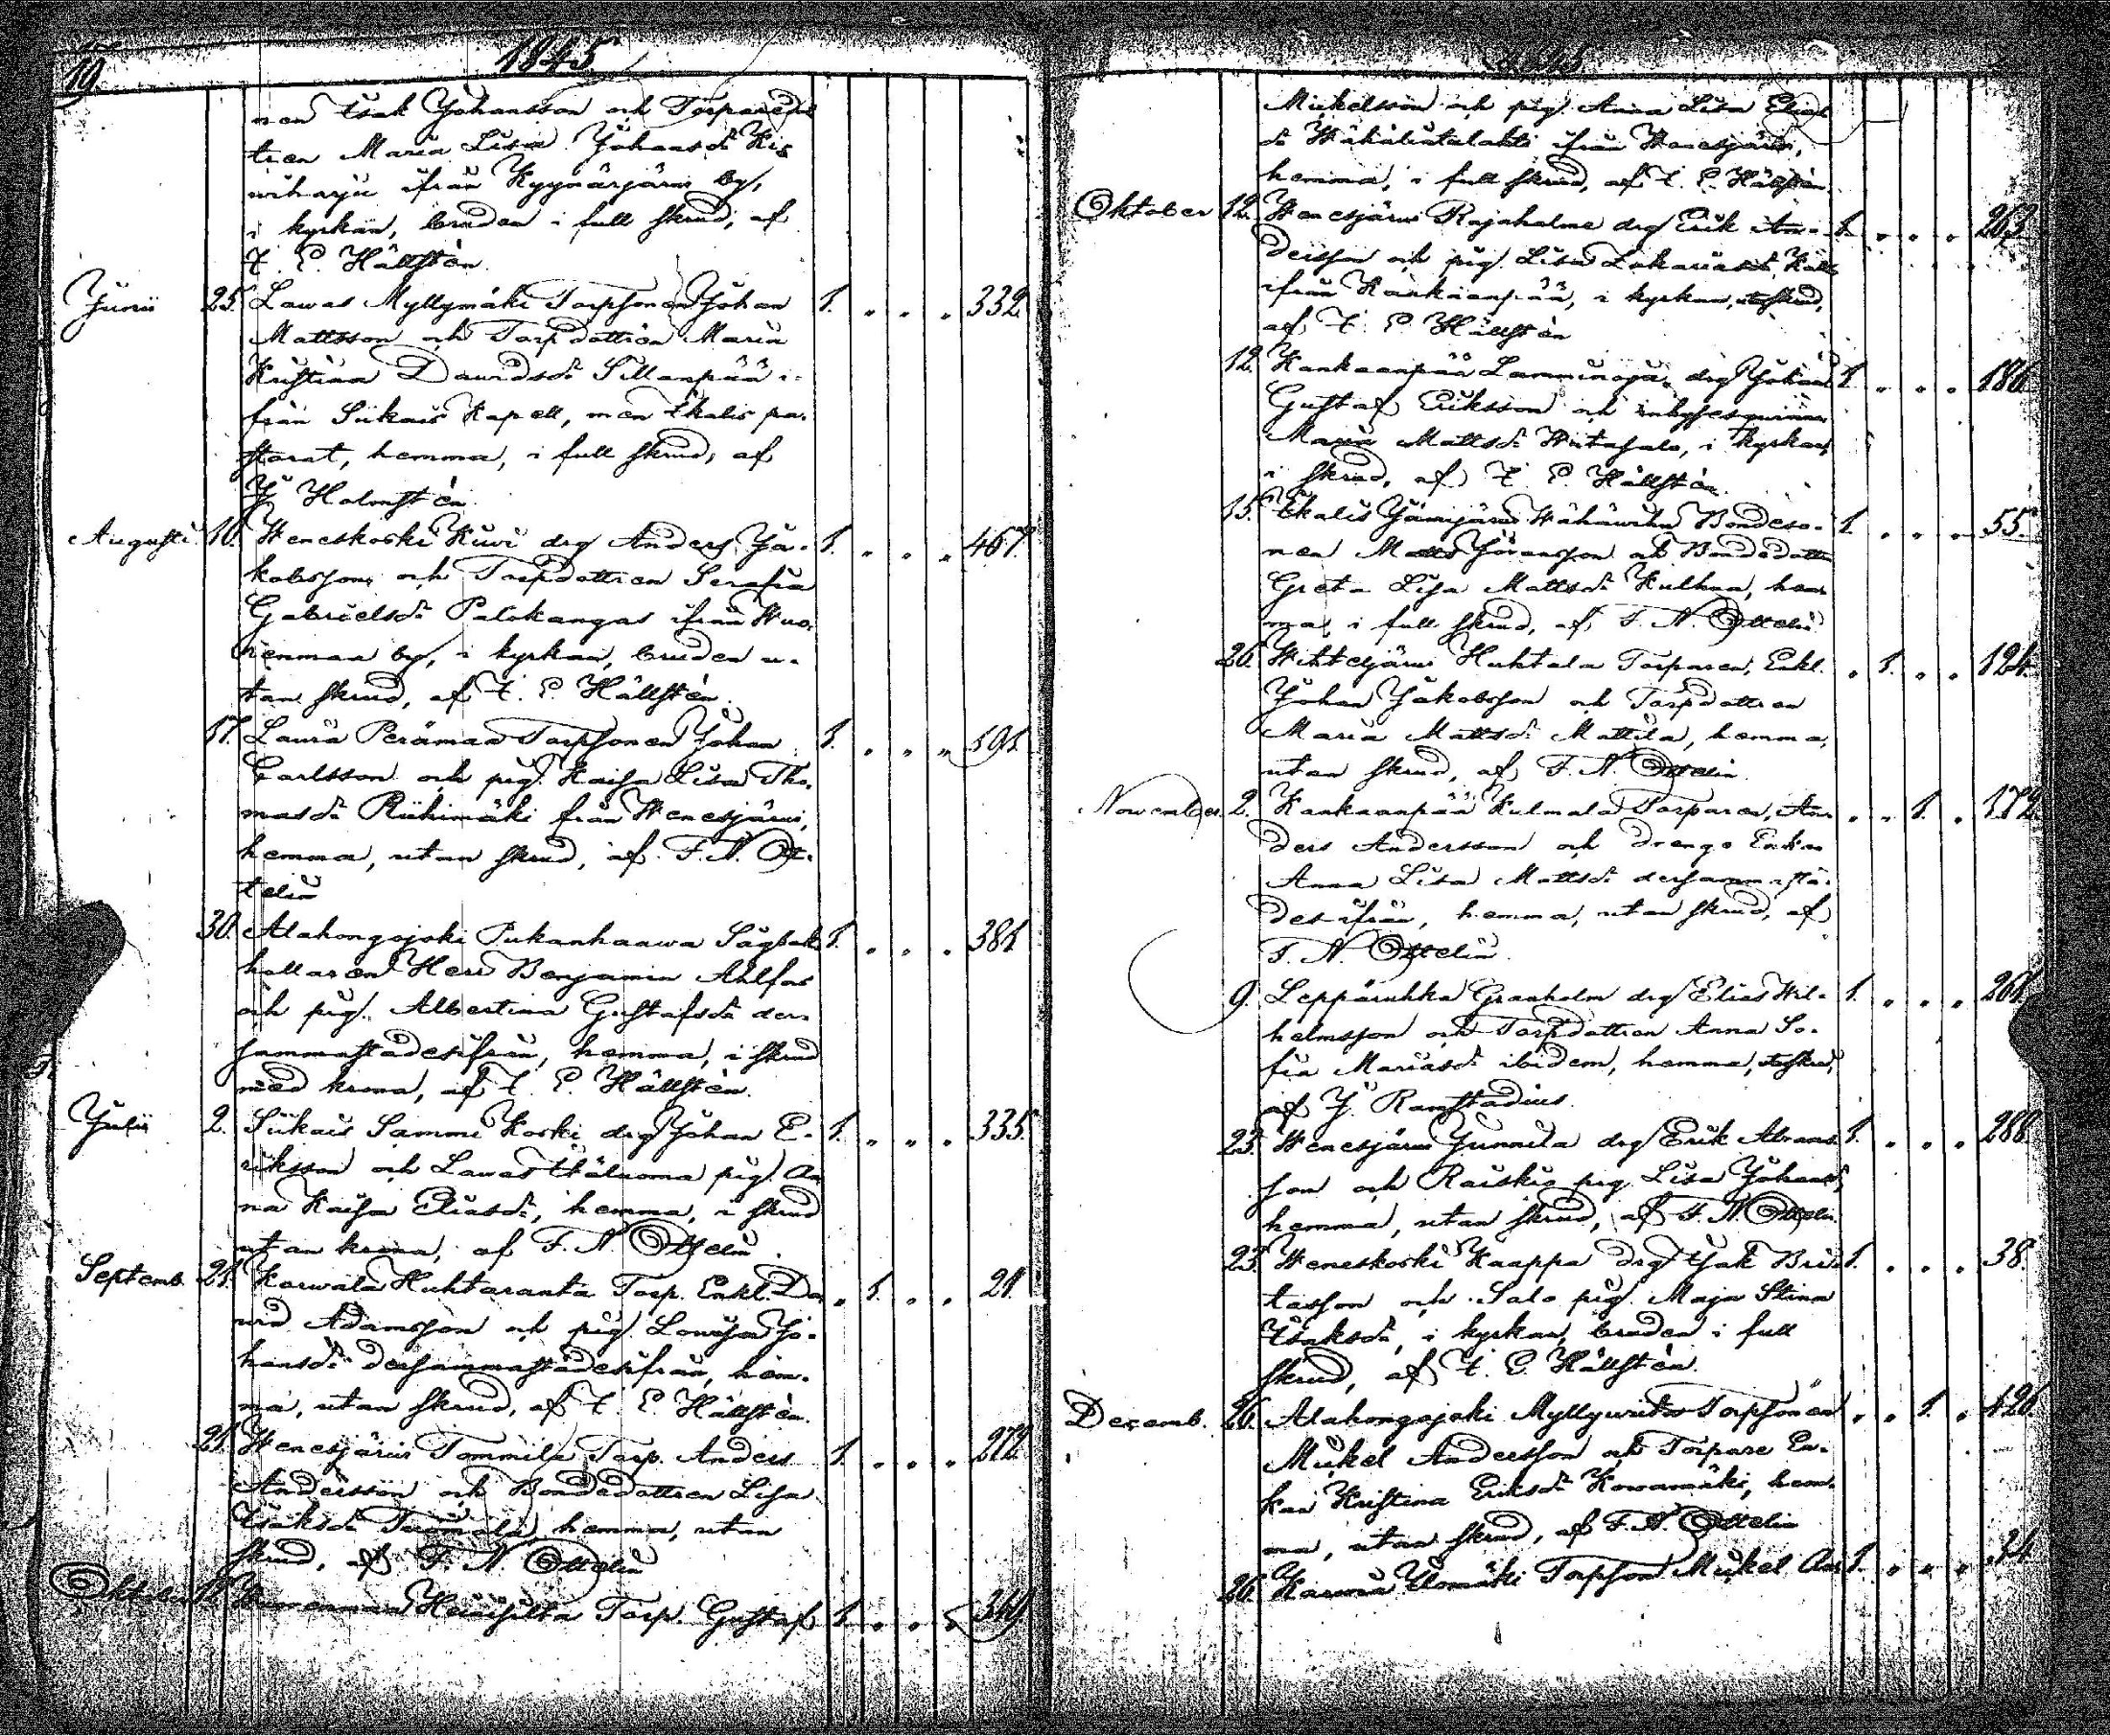 19.
1845
nen Isak Johansson och Torparedot
tren Maria Lisa Johansd:r Kis
wiharju ifrån Kyynärjärwi by,
i kyrkan, bruden i full skrud, af
F. E. Hällstén.
Junii 25. Lawas Myllymäki Torpsonen Johan 1. „ „ „ 332.
Mattsson och Torpdottren Maria
Kristina Davidsd:r Sillanpää i-
från Siikais Kapell, men Ikalis pa-
storat, hemma, i full skrud, af
J. Holmstén.
Augusti 10. Weneskoski Kiwi drg Anders Ja- 1. „ „ „ 467.
kobsson och Torpdottren Serafia
Gabrielsd:r Palokangas ifrån Wuo-
renmaa by, i kyrkan, bruden u-
tan skrud, af F. E. Hällstén.
17. Lauria Perämaa Torpsonen Johan 1. „ „ „ 591.
Carlsson och pig. Kaisa Lisa Tho-
masd:r Riihimäki från Wenesjärwi,
hemma, utan skrud, af F. N. Ot-
telin
30. Alahongojoki Pukanhaawa Sågbok 1. „ „ „ 381.
hållaren Herr Benjamin Ahlfors
och pig. Albertina Gustafsd:r der-
sammastädesifrån, hemma, i skrud
med krona, af F. E. Hällstén.
Julii 2. Siikais Sammi Koski drg Johan E- 1. „ „ „ 335.
riksson och Lawas pig. An
na Kaisa Eliasd:r, hemma, i skrud
utan krona, af F. N. Ottelin
Septemb. 21. Karwala Huhtaranta Torp. Enkl. Da „ 1. „ „ 21.
vid Adamsson och pig. Lowisa Jo-
hansd:r dersammastädesifrån, hem-
ma, utan skrud, af F. E. Hällstén.
21. Wenesjärwi Tommila Torp. Anders 1. „ „ „ 272.
Andersson och Bondedottren Lisa
Isaksd:r Tuomala, hemma, utan
skrud, af F. N. Ottelin
Oktober 12. Heinisilta Torp. Gustaf 1. „ „ „ 349.
1845.
Mickelsson och pig. Anna Lisa Elias
d:r ifrån Wenesjärwi,
hemma, i full skrud, af F. E. Hällstén.
Oktober 12. Wenesjärwi Rajahalme drg Erik An- 1. „ „ „ 263.
dersson och pig. Lisa Zakariasd:r
ifrån Kankaanpää, i kyrkan, utan skrud,
af F. E. Hällstén
12. Kankaanpää Lamminoja drg Johan 1. „ „ „ 186.
Gustaf Eriksson och inhysesqvinnan
Maria Mattsd:r Wiitasalo, i kyrkan,
i skrud, af F. E. Hällstén.
15. Ikalis Jämijärwi Wähäwihu Bondeso- 1. „ „ „ 55.
nen Matts Göransson och Bondedottren
Greta Lisa Mattsd:r Kulhua, hem
ma, i full skrud, af F. N. Ottelin
26. Wihtejärwi Huhtala Torparen, Enkl. „ 1. „ „ 124.
Johan Jakobsson och Torpdottren
Maria Mattsd:r Mattila, hemma,
utan skrud, af F. N. Ottelin.
November 2. Kankaanpää Kulmala Torparen, An- „ „ 1. „ 172.
ders Andersson och Drenge Enkan
Anna Lisa Mattsd:r dersammastä-
desifrån, hemma, utan skrud, af
F. N. Ottelin.
9. Leppäruhka Granholm drg Elias Wil- 1. „ „ „ 261.
helmsson och Torpdottren Anna So-
fia Mariasd:r ibidem, hemma, utan skrud,
af J. Ramstadius.
23. Wenesjärwi Junnila drg Erik Abrams 1. „ „ „ 288.
son och Raiskio pig. Lisa Johansd:r,
hemma, utan skrud, af F. N. Ottelin.
23. Weneskoski Kaappa drg Isak Bri- 1. „ „ „ 38.
tasson och Salo pig. Maja Stina
Isaksd:r, i kyrkan, bruden i full
skrud, af F. E. Hällstén.
Decemb. 26. Alahongojoki Torpsonen „ „ 1. „ 426.
Mickel Andersson och Torpare En-
kan Kristina Eriksd:r Kowamäki, hem-
ma, utan skrud, af F. N. Ottelin
26. Karwia Ylomäki Torpson Mickel An 1. „ „ „ 74